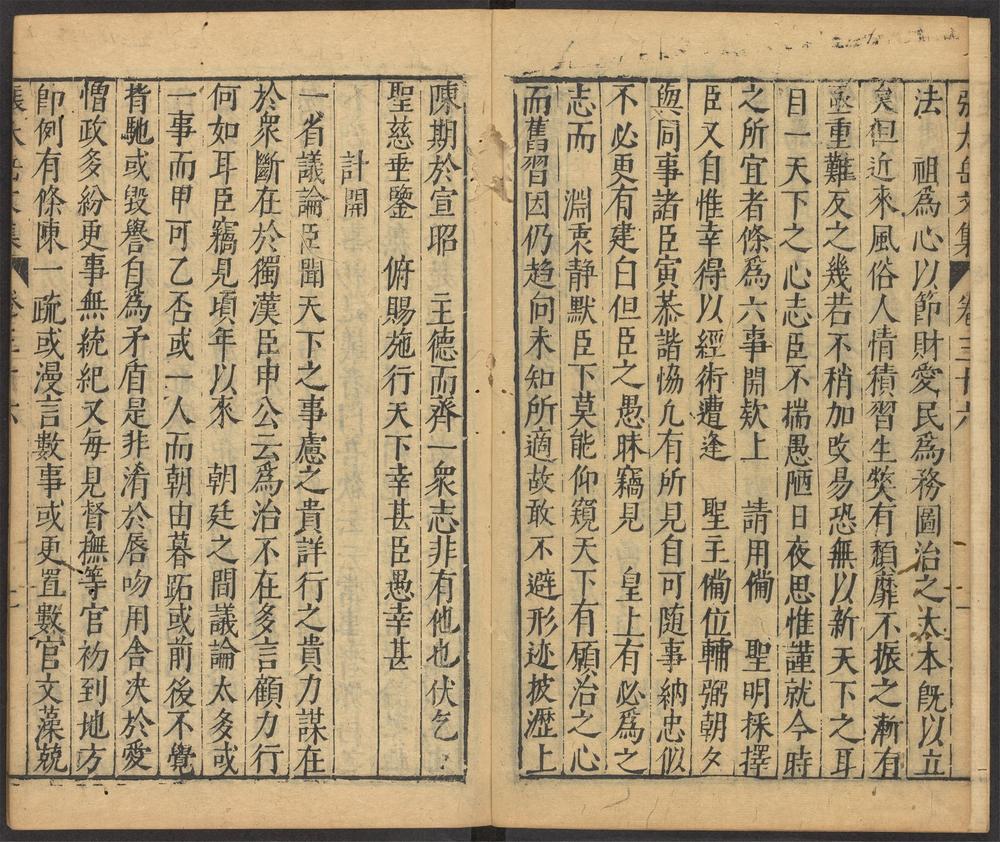 張太岳文集 卷三十六 一
法　祖爲心以節財愛民爲務圖治之大本旣以立
矣但近來風俗人情積習生獘有頽靡不振之漸有
亟重難反之幾若不稍加攺易恐無以新天下之耳
目一天下之心志臣不揣愚陋日夜思惟謹就今時
之所宜者條爲六事開欵上　請用備　聖明採擇
臣又自惟幸得以經術遭逢　聖主備位輔弼朝夕
與同事諸臣寅恭諧恊凢有所見自可随事納忠似
不必更有建白但臣之愚昧竊見　皇上有必爲之
志而　淵衷静默臣下莫能仰窺天下有願治之心
而舊習因仍趋向未知所適故敢不避形迹披瀝上
陳期於宣昭　主德而齊一衆志非有他也伏乞
聖慈垂鑒　俯賜施行天下幸甚臣愚幸甚
計開
一省議論臣聞天下之事慮之貴詳行之貴力謀在
於衆斷在於獨漢臣申公云爲治不在多言顧力行
何如耳臣竊見頃年以來　朝廷之間議論太多或
一事而甲可乙否或一人而朝由暮跖或前後不覺
背馳或毀譽自爲矛盾是非淆於唇吻用舍决於愛
憎政多紛更事無統紀又每見督撫等官初到地方
卽例有條陳一疏或漫言數事或更置數官文藻兢
張太岳文集 卷三十六